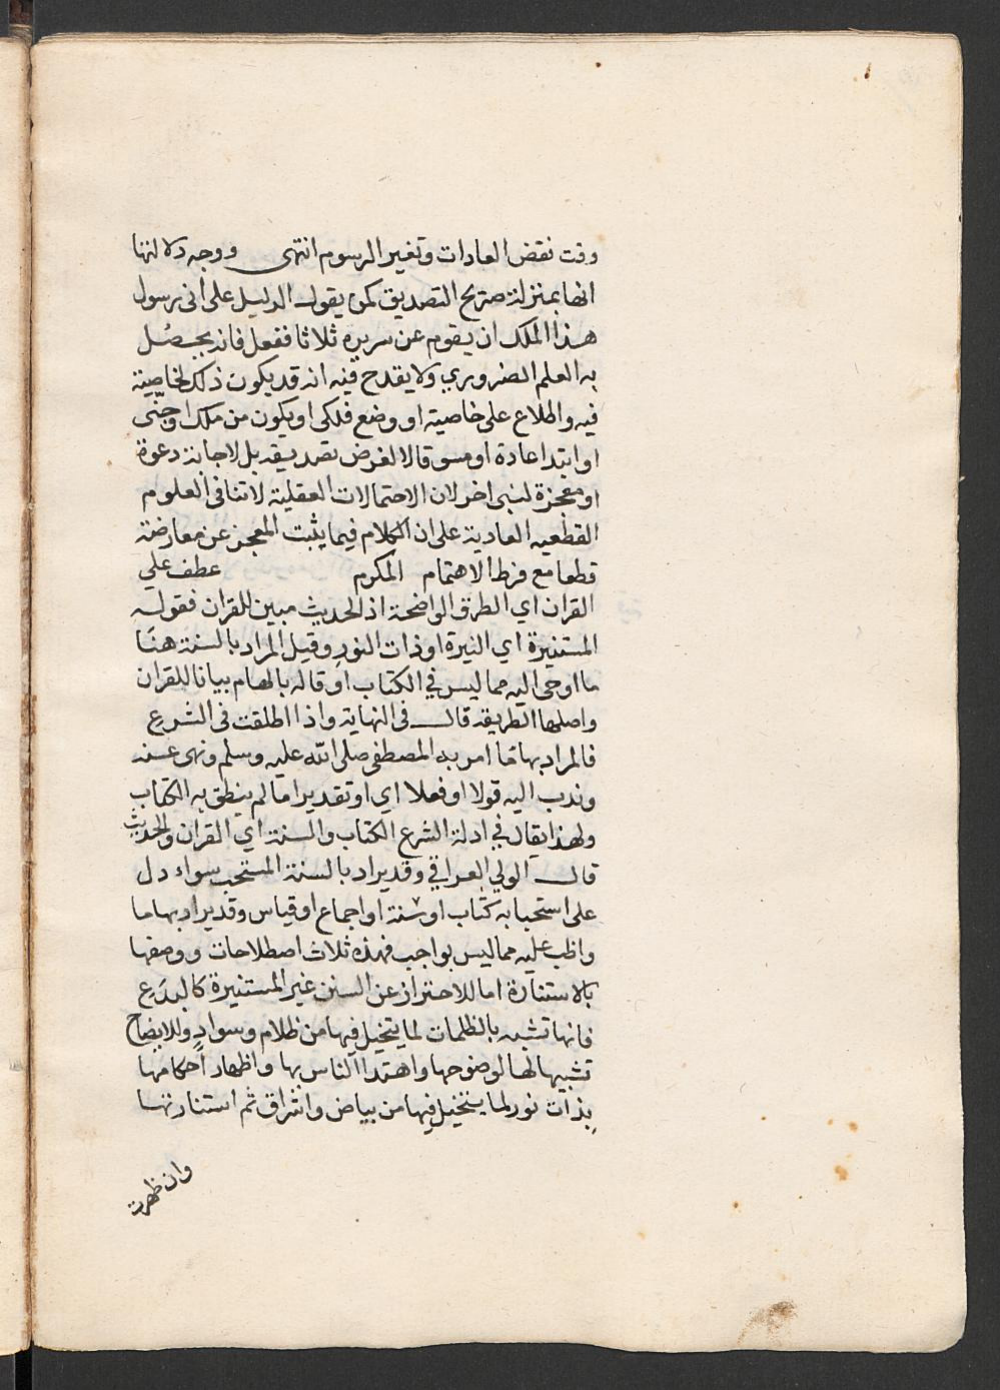 وقت نقض العادات وتغير الرسوم انتهى ووجه دلالتها
انها بمنزلة صريح التصديق كمن يقول الدليل على انى رسول
هذا الملك ان يقوم عن سريره ثلاثا ففعل فانه يحصل
به العلم الضروري ولا يقدح فيه انه قد يكون ذلك لخاصية
فيه واطلاع على خاصية او وضع فلكى او يكون من ملك او جنّى
او ابتدا عادة او مسوقا لا لغرض تصديقه بل لاجابة دعوة
او معجزة لنبى اخر لان الاحتمالات العقلية لا تنافى العلوم
القطعيه العادية على ان الكلام فيما يثبت المعجز عن معارضته
قطعا مع فرط الاهتمام المكرم عطف علي
القران اي الطرق الواضحة اذ الحديث مبين للقران فقوله
المستنيرة اي النيرة او ذات النور وقيل المراد بالسنة هنا
ما اوحى اليه مما ليس في الكتاب او قاله بالهام بيانا للقران
واصلها الطريقه قال فى النهاية واذا اطلقت فى الشرع
فالمراد بها ما امر به المصطفى صلى الله عليه وسلم ونهى عنه
وندب اليه قولا او فعلا اي او تقديرا مما لم ينطق به الكتاب
ولهذا يقال في ادلة الشرع الكتاب والسنة اي القران والحديث
قال الولي العراقي وقد يراد بالسنة المستحب سواء دل
على استحبابه كتاب او سنة او اجماع او قياس وقد يراد بها ما
واظب عليه مما ليس بواجب فهذه ثلاث اصطلاحات ووصفها
بالاستنارة اما للاحتراز عن السنن غير المستنيرة كالبدع
فانها تشبه بالظلمات لما يتخيل فيها من ظلام وسواد وللايضاح
تشبيها لها لوضوحها واهتدا الناس بها واظهار احكامها
بذات نور لما يتخيل فيها من بياض واشراق ثم استنارتها
وان ظهرت